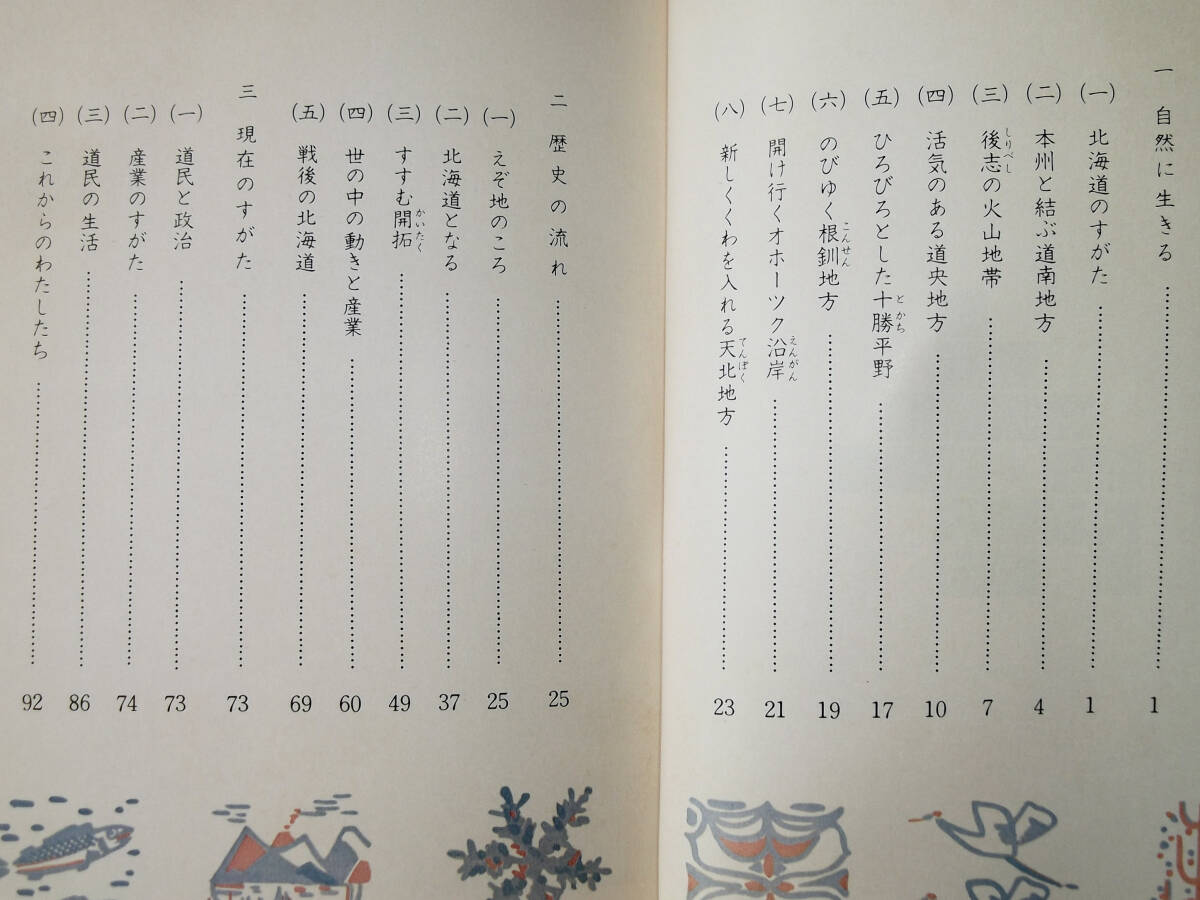 一 自然に生きる……1
(一) 北海道のすがた……1
(二) 本州と結ぶ道南地方……4
(三) 後志の火山地帯……7
しりべし
(四) 活気のある道央地方……10
(五) ひろびろとした十勝平野……17
とかち
(六) のびゆく根釧地方……19
こんせん
(七) 開け行くオホーツク沿岸……21
えんがん
(八) 新しくくわを入れる天北地方……23
てんぽく
二 歴史の流れ……25
(一) えぞ地のころ……25
(二) 北海道となる……37
(三) すすむ開拓……49
かいたく
(四) 世の中の動きと産業……60
(五) 戦後の北海道……69
三 現在のすがた……73
(一) 道民と政治……73
(二) 産業のすがた……74
(三) 道民の生活……86
(四) これからのわたしたち……92